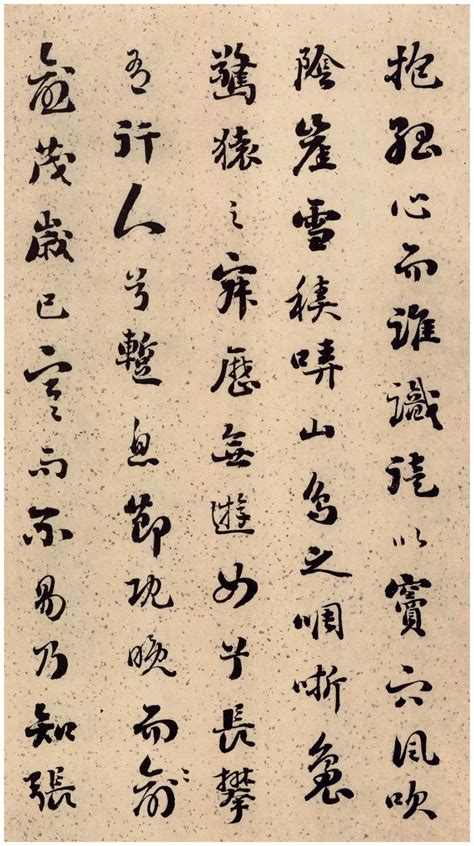 抱孤心而誰識以竇穴風吹
陰崖雪積哢山鳥之啁哳裊
驚猿之寂歷無遊女兮長攀
有行人兮暫息節既晚而愈
愈茂歲已寒而不易乃知張